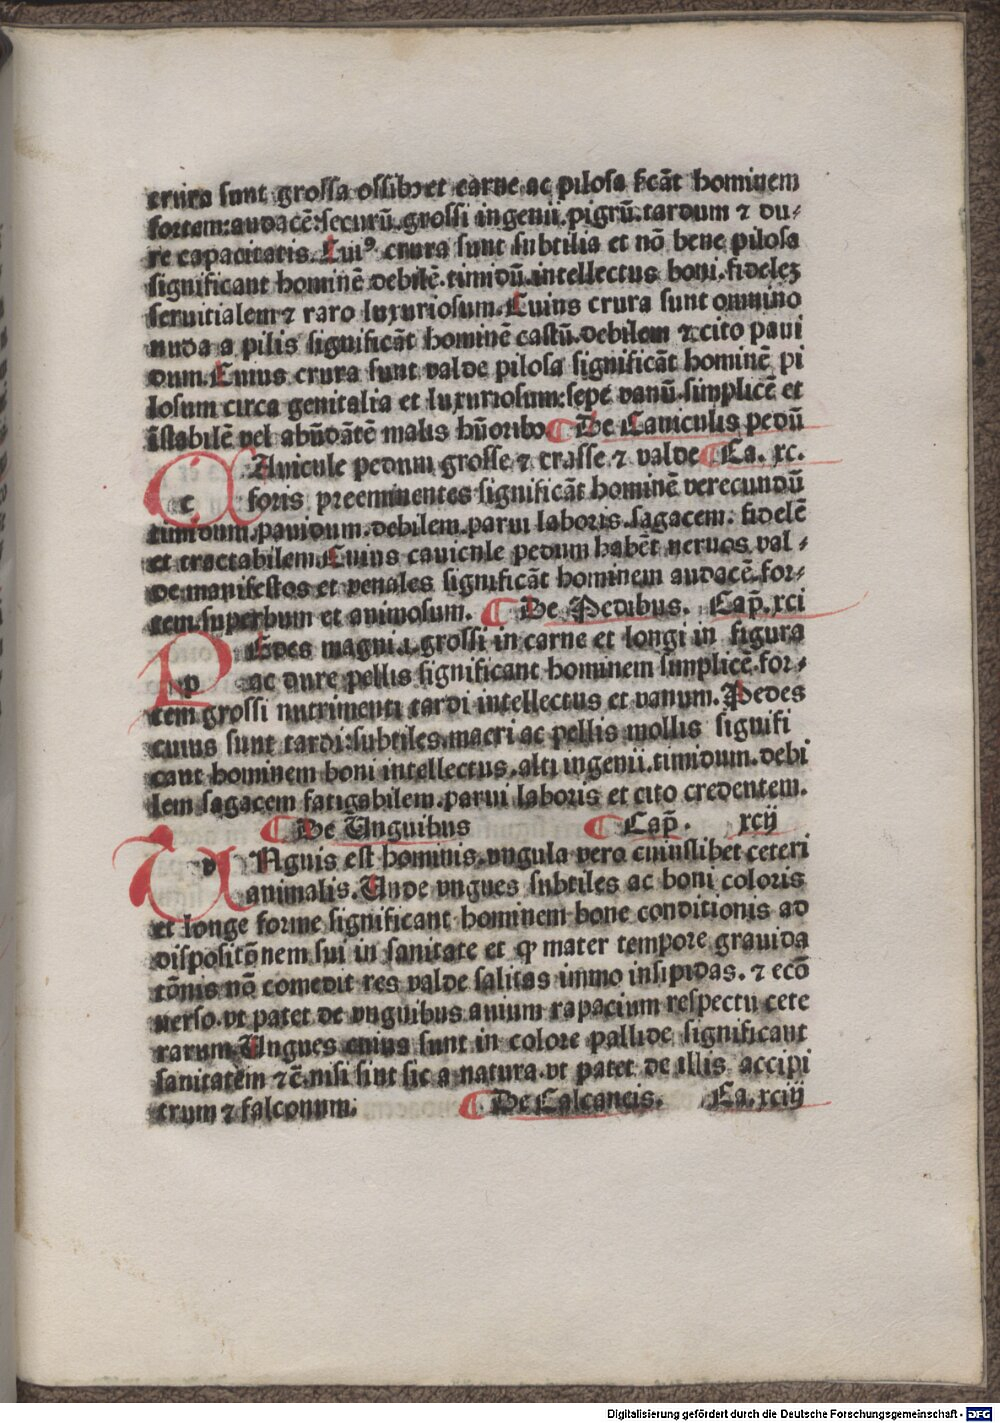 crura sunt grossa ossibꝰ et carne ac pilosa sͨcāt hominem
fortem: audacē: securū. grossi ingenii. pigrū. tardum ⁊ du-
re capacitatis. Cuiꝰ crura sunt subtilia et nō bene pilosa
significant hominē debilē. timidū. intellectus boni. fidelez
seruitialem ⁊ raro luxuriosum. Cuius crura sunt omnino
nuda a pilis significāt hominē castū. debilem ⁊ cito paui
dum. Cuius crura sunt valde pilosa significāt hominē pi
losum circa genitalia et luxuriosum: sepe vanū. simplicē et
īstabilē vel abūdātē malis hūoribꝰ De Cauiculis pedū
c Auicule pedum grosse ⁊ crasse ⁊ valde Ca. xc.
foris preeminentes significāt hominē verecundū
timidum. pauidum. debilem. parui laboris. sagacem. fidelē
et tractabilem. Cuius cauicule pedum habēt neruos val-
de manifestos et venales significāt hominem audacē. for-
tem. superbum et animosum. De Pedibus. Cap̄. xci
p Edes magni .i. grossi in carne et longi in figura
ac dure pellis significant hominem simplicē. for-
tem grossi nutrimenti tardi intellectus et vanum. Pedes
cuius sunt tardi: subtiles. macri ac pellis mollis signifi
cant hominem boni intellectus. alti ingenii. timidum. debi
lem sagacem fatigabilem. parui laboris et cito credentem.
De Unguibus Cap̄. xcij
v Nguis est hominis. vngula vero cuiuslibet ceteri
animalis. Unde vngues subtiles ac boni coloris
et longe forme significant hominem bone conditionis ad
dispositōnem sui in sanitate et ꝙ mater tempore grauida
tōnis nō comedit res valde salitas immo insipidas. ⁊ ecō
uerso. vt patet de vnguibus auium rapacium respectu cete
rarum. Ungues cuius sunt in colore pallide significant
sanitatem ⁊c̄. nisi sint sic a natura. vt patet de illis accipi
trum ⁊ falconum. De Calcaneis. Ca. xciij
Digitalisierung gefördert durch die Deutsche Forschungsgemeinschaft - DFG